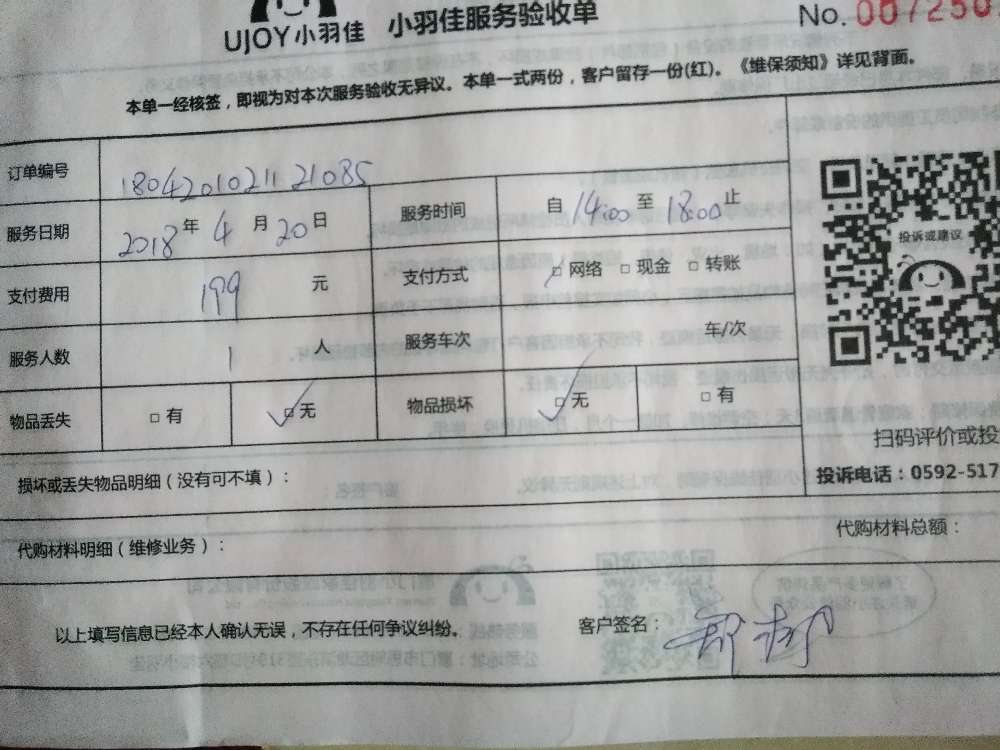 UJOY小羽佳 小羽佳服务验收单 No. 007250
本单一经核签，即视为对本次服务验收无异议。本单一式两份，客户留存一份(红)。《维保须知》详见背面。
订单编号 180420102112 1085
服务日期 2018 年 4 月 20 日 服务时间 自 14:00 至 18:00 止
投诉或建议
支付费用 199 元 支付方式 □ 网络 □ 现金 □ 转账
服务人数 1 人 服务车次 车/次
物品丢失 □ 有 □ 无 物品损坏 □ 无 □ 有
扫码评价或投
投诉电话：0592-517
损坏或丢失物品明细（没有可不填）：
代购材料明细（维修业务）： 代购材料总额：
以上填写信息已经本人确认无误，不存在任何争议纠纷。 客户签名：